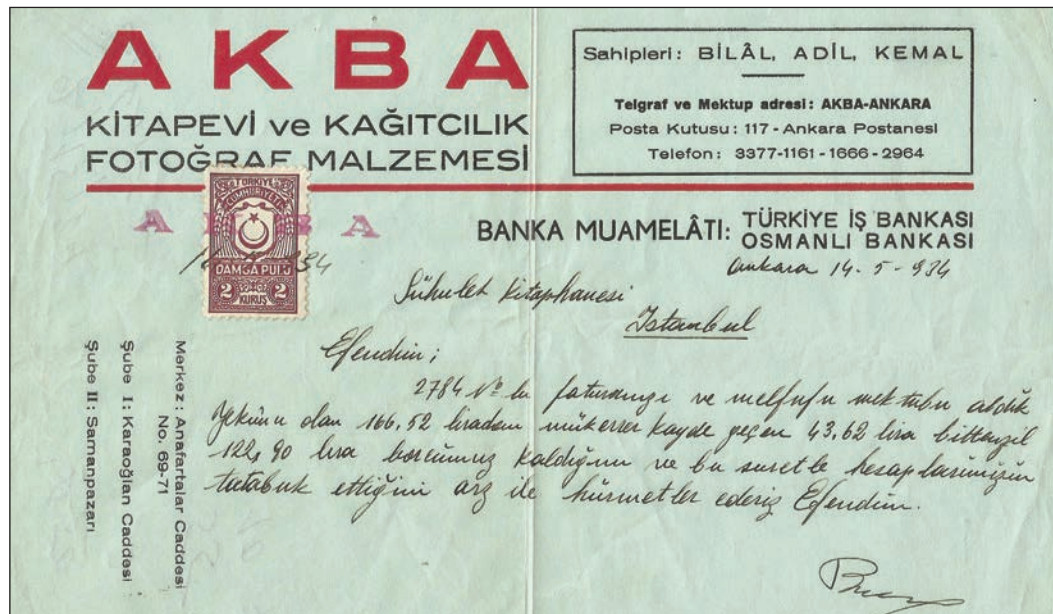 AKBA
KİTAPEVİ ve KAĞITCILIK
FOTOĞRAF MALZEMESİ
Sahipleri: BİLÂL, ADİL, KEMAL
Telgraf ve Mektup adresi: AKBA-ANKARA
Posta Kutusu: 117 - Ankara Postanesi
Telefon: 3377-1161-1666-2964
TÜRKİYE
CUMHURİYETİ
DAMGA PULU
2 KURUŞ 2
BANKA MUAMELÂTI: TÜRKİYE İŞ BANKASI
OSMANLI BANKASI
Ankara 14-5-934
Sühulet Kitaphanesi
Istanbul
Efendim;
2784 No lu faturanızı ve melfufu mektubu aldık
Yekûnu olan 166.52 liradan mükerrer kayde geçen 43.62 lira bittenzil
122,90 lira borcumuz kaldığını ve bu suretle hesaplarımızın
tatabuk ettiğini arz ile hürmetler ederiz Efendim.
Merkez: Anafartalar Caddesi
No. 69-71
Şube I: Karaoğlan Caddesi
Şube II: Samanpazarı